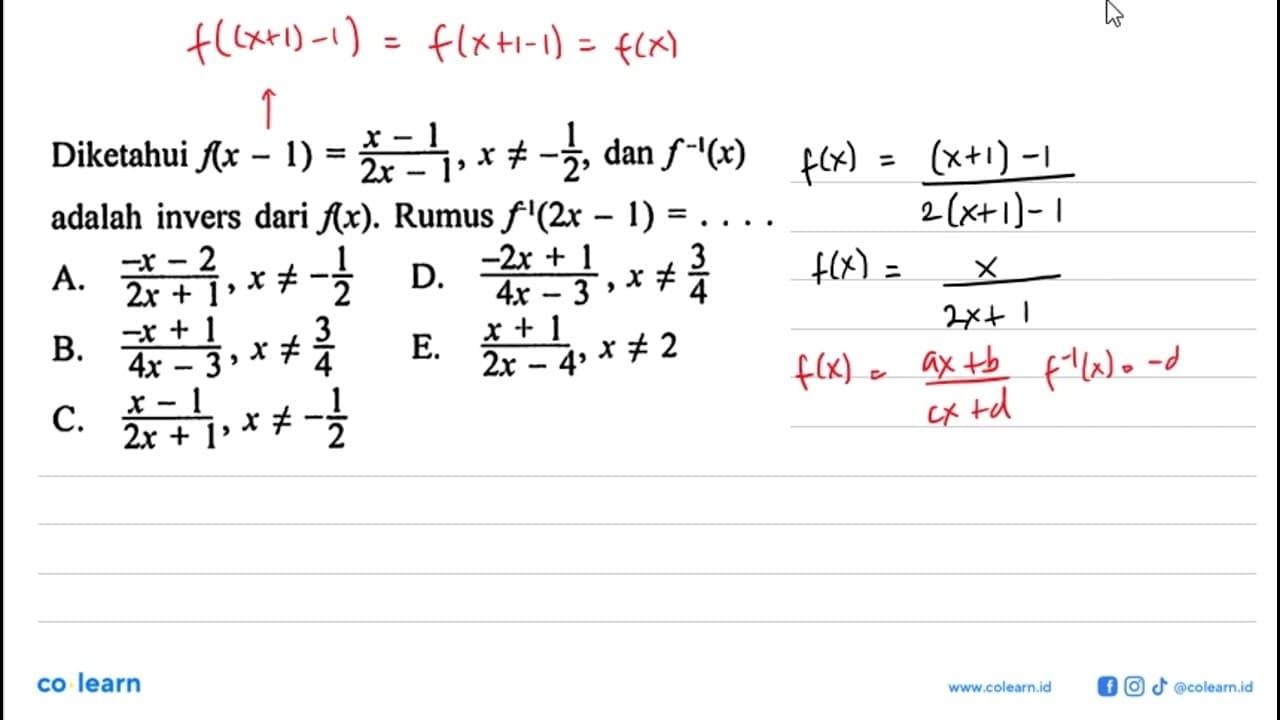 f((x+1)-1) = f(x+1-1) = f(x)
↑
Diketahui f(x – 1) = (x – 1)/(2x – 1), x ≠ –1/2, dan f⁻¹(x)
adalah invers dari f(x). Rumus f¹(2x – 1) = . . . .
A. (–x – 2)/(2x + 1), x ≠ –1/2
B. (–x + 1)/(4x – 3), x ≠ 3/4
C. (x – 1)/(2x + 1), x ≠ –1/2
D. (–2x + 1)/(4x – 3), x ≠ 3/4
E. (x + 1)/(2x – 4), x ≠ 2
f(x) = ((x+1)-1)/(2(x+1)-1)
f(x) = x/(2x+1)
f(x) = (ax+b)/(cx+d) f⁻¹(x) = -d
co learn
www.colearn.id
@colearn.id